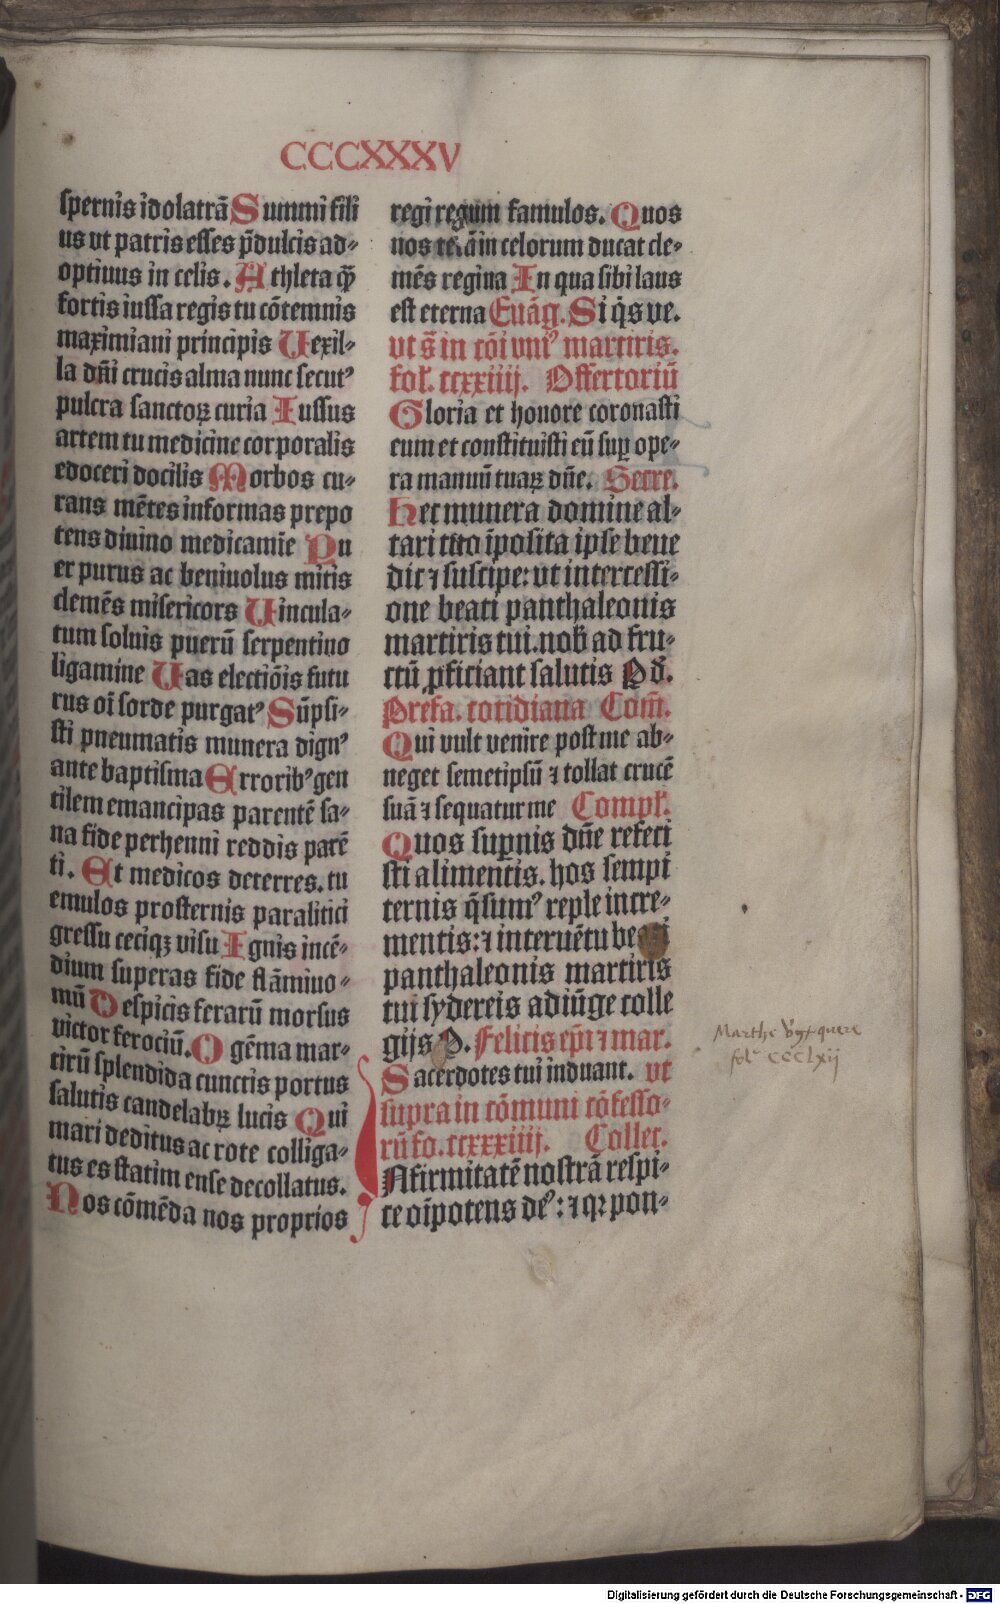 CCCXXXV
spernis idolatrā Summi fili
us vt patris esses p̄dulcis ad-
optiuus in celis. Athleta q̄ȝ
fortis iussa regis tu cōtemnis
maximiani principis Uexil-
la dn̄i crucis alma nunc secutꝰ
pulcra sanctoꝝ curia Iussus
artem tu medicine corporalis
edoceri docilis Morbos cu-
rans mētes informas prepo
tens diuino medicamīe Pu
er purus ac beniuolus mitis
clemēs misericors Uincula-
tum soluis puerū serpentino
ligamine Uas electiōis futu
rus oī sorde purgatꝰ Sūpsi-
sti pneumatis munera dignꝰ
ante baptisma Erroribꝰ gen
tilem emancipas parentē sa-
na fide perhenni reddis parē
ti. Et medicos deterres. tu
emulos prosternis paralitici
gressu ceciqȝ visu Ignis incē-
dium superas fide flāmiuo-
mū Despicis ferarū morsus
victor ferociū. O gēma mar-
tirū splendida cunctis portus
salutis candelabꝝ lucis Qui
mari deditus ac rote colliga-
tus es statim ense decollatus.
Nos cōmēda nos proprios
regi regum famulos. Quos
nos in celorum ducat cle-
mēs regina In qua sibi laus
est eterna Euāg. Si q̇s ve.
vt s̄ in cōi vniꝰ martiris.
fol. ccxxiiij. Offertoriū
Gloria et honore coronasti
eum et constituisti eū suꝑ ope-
ra manuū tuaꝝ dn̄e. Secre.
Hec munera domine al-
tari tuo īposita ipse bene
dic ⁊ suscipe: vt intercessi-
one beati panthaleonis
martiris tui. nob̄ ad fru-
ctū ꝓficiant salutis P d̄.
Prefa. cotidiana Com̄.
Qui vult venire post me ab-
neget semetipsū ⁊ tollat crucē
suā ⁊ sequatur me Compl.
Quos suꝑnis dn̄e refeci
sti alimentis. hos sempi
ternis q̄sumꝰ reple incre-
mentis: ⁊ interuētu beati
panthaleonis martiris
tui sydereis adiūge colle
gijs P. Felicis ep̄i ⁊ mar.
Sacerdotes tui induant. vt
supra in cōmuni cōfesso-
rū fo. ccxxxiiij. Collec.
Infirmitatē nostrā respi-
ce oīpotens deꝰ: ⁊ qꝛ pon-
Marthe
fol. ccclxij
Digitalisierung gefördert durch die Deutsche Forschungsgemeinschaft - DFG